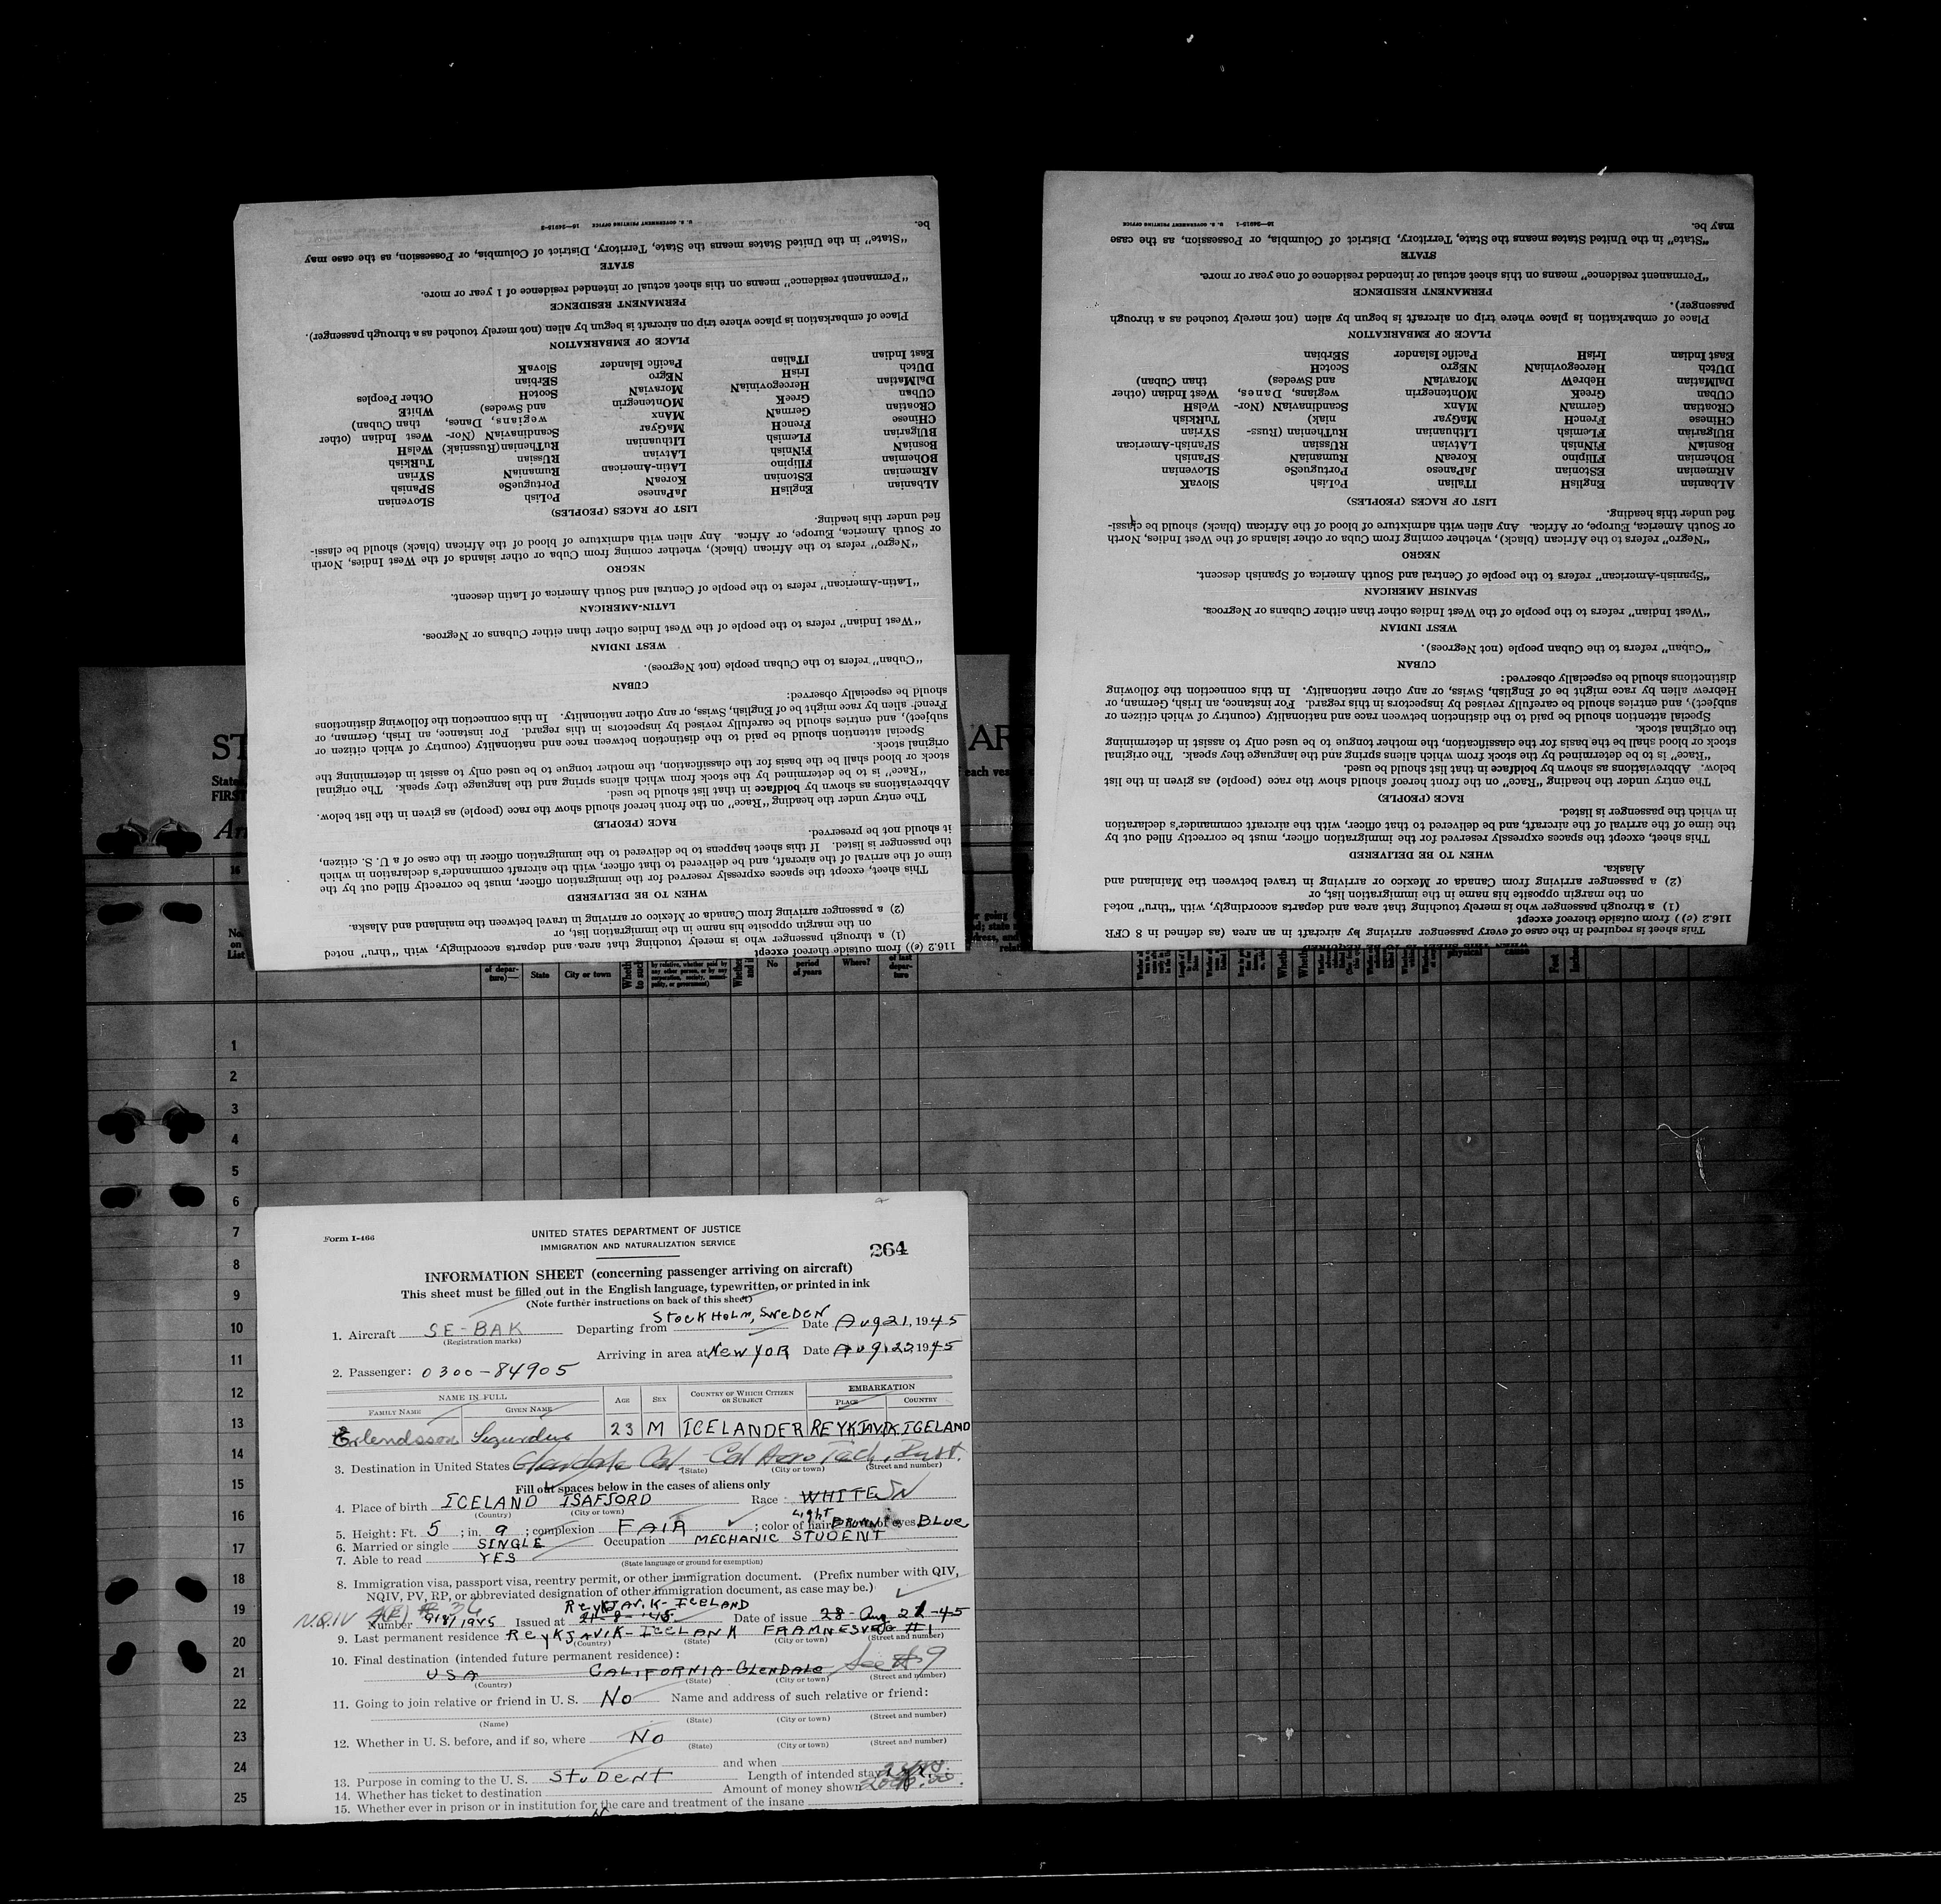 be.
U. S. GOVERNMENT PRINTING OFFICE 16—24915-2
"State" in the United States means the State, Territory, District of Columbia, or Possession, as the case may
STATE
"Permanent residence" means on this sheet actual or intended residence of 1 year or more.
PERMANENT RESIDENCE
Place of embarkation is place where trip on aircraft is begun by alien (not merely touched as a through passenger).
PLACE OF EMBARKATION
East Indian ITalian Pacific Islander SlovaK
DUtch IrisH NEgro SErbian Other Peoples
DalMatian HercegoviniaN MoraviaN ScotcH WhitE
CUban GreeK MOntenegrin and Swedes) than Cuban)
CRoatian GermaN MAnx wegians, Danes, West Indian (other
CHinese FrencH MaGyar ScandinaviaN (Nor- WelsH
BUlgarian FLemish LIthuanian RuThenian (Russniak) TurKish
BosniaN FiNnish LAtvian RUssian SYrian
BOhemian FIlipino LAtin-American RumaniaN SPanish
ARmenian EStonian KoreaN PortugueSe SLovenian
ALbanian EnglisH JaPanese PoLish
LIST OF RACES (PEOPLES)
fied under this heading.
or South America, Europe, or Africa. Any alien with admixture of blood of the African (black) should be classi-
"Negro" refers to the African (black), whether coming from Cuba or other islands of the West Indies, North
NEGRO
"Latin-American" refers to the people of Central and South America of Latin descent.
LATIN-AMERICAN
"West Indian" refers to the people of the West Indies other than either Cubans or Negroes.
WEST INDIAN
"Cuban" refers to the Cuban people (not Negroes).
CUBAN
should be especially observed:
French alien by race might be of English, Swiss, or any other nationality. In this connection the following distinctions
subject), and entries should be carefully revised by inspectors in this regard. For instance, an Irish, German, or
Special attention should be paid to the distinction between race and nationality (country of which citizen or
original stock.
stock or blood shall be the basis for the classification, the mother tongue to be used only to assist in determining the
"Race" is to be determined by the stock from which aliens spring and the language they speak. The original
Abbreviations as shown by boldface in that list should be used.
The entry under the heading "Race" on the front hereof should show the race (people) as given in the list below.
RACE (PEOPLE)
it should not be preserved.
the passenger is listed. If this sheet happens to be delivered to the immigration officer in the case of a U. S. citizen,
time of the arrival of the aircraft, and be delivered to that officer, with the aircraft commander's declaration in which
This sheet, except the spaces expressly reserved for the immigration officer, must be correctly filled out by the
WHEN TO BE DELIVERED
(2) a passenger arriving from Canada or Mexico or arriving in travel between the mainland and Alaska.
on the margin opposite his name in the immigration list, or
(1) a through passenger who is merely touching that area and departs accordingly, with "thru" noted
116.2 (c)) from outside thereof except
may be.
16—24915-1 U. S. GOVERNMENT PRINTING OFFICE
"State" in the United States means the State, Territory, District of Columbia, or Possession, as the case
STATE
"Permanent residence" means on this sheet actual or intended residence of one year or more.
PERMANENT RESIDENCE
passenger).
Place of embarkation is place where trip on aircraft is begun by alien (not merely touched as a through
PLACE OF EMBARKATION
East Indian IrisH Pacific Islander SErbian
DUtch HercegovinaN NEgro ScotcH
DalMatian HebreW MoraviaN and Swedes) than Cuban)
CUban GreeK MOntenegrin wegians, Danes, West Indian (other
CRoatian GermaN MAnx ScandinaviaN (Nor- WelsH
CHinese FrencH MaGyar niak) TurKish
BUlgarian FLemish LIthuanian RuThenian (Russ- SYrian
BosniaN FiNnish LAtvian RUssian SPanish-American
BOhemian FIlipino KoreaN RumaniaN SPanish
ARmenian EStonian JaPanese PortugueSe SLovenian
ALbanian EnglisH ITalian PoLish SlovaK
LIST OF RACES (PEOPLES)
fied under this heading.
or South America, Europe, or Africa. Any alien with admixture of blood of the African (black) should be classi-
"Negro" refers to the African (black), whether coming from Cuba or other islands of the West Indies, North
NEGRO
"Spanish-American" refers to the people of Central and South America of Spanish descent.
SPANISH AMERICAN
"West Indian" refers to the people of the West Indies other than either Cubans or Negroes.
WEST INDIAN
"Cuban" refers to the Cuban people (not Negroes).
CUBAN
distinctions should be especially observed:
Hebrew alien by race might be of English, Swiss, or any other nationality. In this connection the following
subject), and entries should be carefully revised by inspectors in this regard. For instance, an Irish, German, or
Special attention should be paid to the distinction between race and nationality (country of which citizen or
the original stock.
stock or blood shall be the basis for the classification, the mother tongue to be used only to assist in determining
"Race" is to be determined by the stock from which aliens spring and the language they speak. The original
below. Abbreviations as shown by boldface in that list should be used.
The entry under the heading "Race" on the front hereof should show the race (people) as given in the list
RACE (PEOPLE)
in which the passenger is listed.
the time of the arrival of the aircraft, and be delivered to that officer, with the aircraft commander's declaration
This sheet, except the spaces expressly reserved for the immigration officer, must be correctly filled out by
WHEN TO BE DELIVERED
Alaska.
(2) a passenger arriving from Canada or Mexico or arriving in travel between the Mainland and
on the margin opposite his name in the immigration list, or
(1) a through passenger who is merely touching that area and departs accordingly, with "thru" noted
116.2 (c)) from outside thereof except
This sheet is required in the case of every passenger arriving by aircraft in an area (as defined in 8 CFR
ST
AR
State
each ves
FIRST
16
No.
on
List
of depar-
ture)—
State
City or town
No
period
of years
Where?
of last
depar-
ture
physical
cause
Feet
Inches
1
2
3
4
5
6
7
8
9
10
11
12
13
14
15
16
17
18
19
20
21
22
23
24
25
Form I-466
UNITED STATES DEPARTMENT OF JUSTICE
IMMIGRATION AND NATURALIZATION SERVICE
264
INFORMATION SHEET (concerning passenger arriving on aircraft)
This sheet must be filled out in the English language, typewritten, or printed in ink
(Note further instructions on back of this sheet)
1. Aircraft SE-BAK Departing from STOCKHOLM, SWEDEN Date Aug 21, 1945
(Registration marks)
Arriving in area at New YOR Date Aug. 22, 1945
2. Passenger: 0300-84905
NAME IN FULL AGE SEX COUNTRY OF WHICH CITIZEN OR SUBJECT EMBARKATION
FAMILY NAME GIVEN NAME PLACE COUNTRY
Erlendsson Sigurdur 23 M ICELANDER REYKJAVIK ICELAND
3. Destination in United States Glendale Cal Cal Aero Tech. Inst.
(State) (City or town) (Street and number)
Fill out spaces below in the cases of aliens only
4. Place of birth ICELAND ISAFJORD Race WHITE SN
(Country) (City or town)
5. Height: Ft. 5 ; in. 9 ; complexion FAIR ; color of hair light BROWN of eyes BLUE
6. Married or single SINGLE Occupation MECHANIC STUDENT
7. Able to read YES
(State language or ground for exemption)
8. Immigration visa, passport visa, reentry permit, or other immigration document. (Prefix number with QIV,
NQIV, PV, RP, or abbreviated designation of other immigration document, as case may be.)
REYKJAVIK-ICELAND
NQIV Number 36 Issued at Date of issue 28-Aug 21-45
9. Last permanent residence REYKJAVIK-ICELANK FRAMNESVEG #1
(Country) (State) (City or town) (Street and number)
10. Final destination (intended future permanent residence):
USA CALIFORNIA-GLENDALE See #9
(Country) (State) (City or town) (Street and number)
11. Going to join relative or friend in U. S. No Name and address of such relative or friend:
(Name) (State) (City or town) (Street and number)
12. Whether in U. S. before, and if so, where No
(State) (City or town) (Street and number)
and when
13. Purpose in coming to the U. S. STUDENT Length of intended stay
14. Whether has ticket to destination Amount of money shown
15. Whether ever in prison or in institution for the care and treatment of the insane